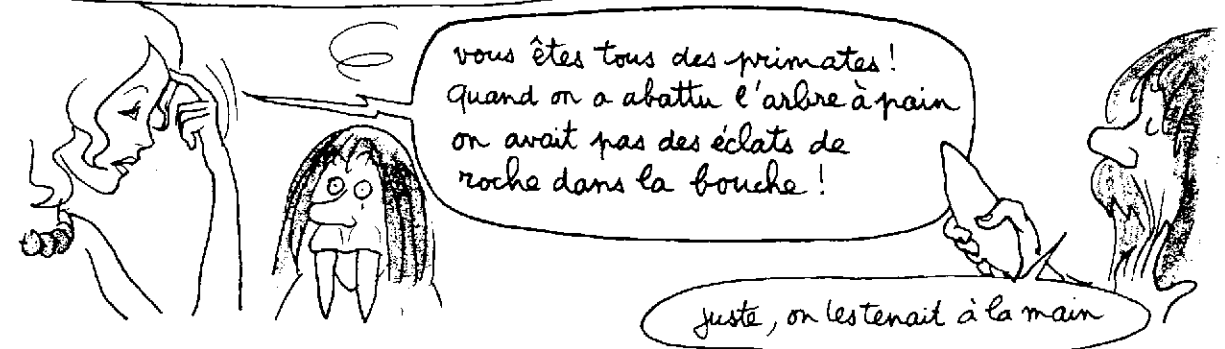 vous êtes tous des primates !
Quand on a abattu l'arbre à pain
on avait pas des éclats de
roche dans la bouche !
juste, on les tenait à la main